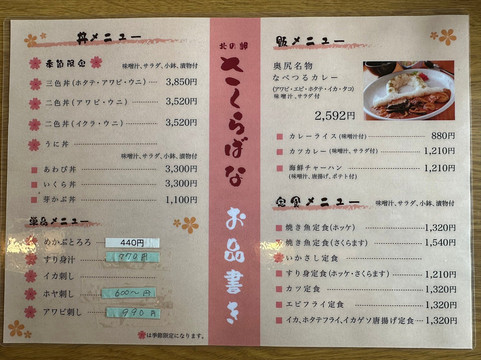 丼メニュー
季節限定
味噌汁、サラダ、小鉢、漬物付
三色丼(ホタテ・アワビ・ウニ) 3,850円
二色丼(アワビ・ウニ) 3,520円
二色丼(イクラ・ウニ) 3,520円
うに丼
味噌汁、サラダ、小鉢、漬物付
あわび丼 3,300円
いくら丼 3,300円
芽かぶ丼 1,100円
単品メニュー
めかぶとろろ 440円
すり身汁
イカ刺し
ホヤ刺し 600〜円
アワビ刺し 990円
は季節限定になります。
北の岬
さくらばな
お品書き
飯メニュー
奥尻名物
なべつるカレー
(アワビ・エビ・ホタテ・イカ・タコ)
味噌汁、サラダ付
2,592円
カレーライス(味噌汁付) 880円
カツカレー(味噌汁、サラダ付) 1,210円
海鮮チャーハン 1,210円
(味噌汁、唐揚げ、ポテト付)
定食メニュー 味噌汁、サラダ、小鉢、漬物付
焼き魚定食(ホッケ) 1,320円
焼き魚定食(さくらます) 1,540円
いかさし定食
すり身定食(ホッケ・さくらます) 1,210円
カツ定食 1,320円
エビフライ定食 1,320円
イカ、ホタテフライ、イカゲソ唐揚げ定食 1,320円